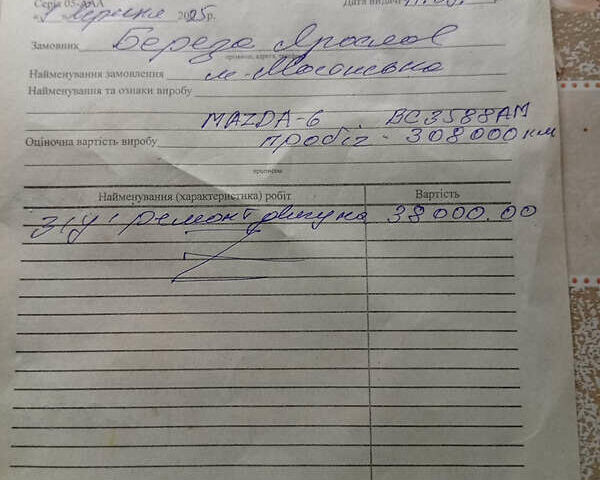 Серія 05-ААА
Дата видачі
«1» Червня 2025р.
Замовник Береза Ярослав
прізвище, адреса, телефон
Найменування замовлення
Найменування та ознаки виробу
MAZDA-6 BC3588AM
Оціночна вартість виробу пробіг - 308000 км
прописом
Найменування (характеристика) робіт Вартість
з/у і ремонт двигуна 38000.00